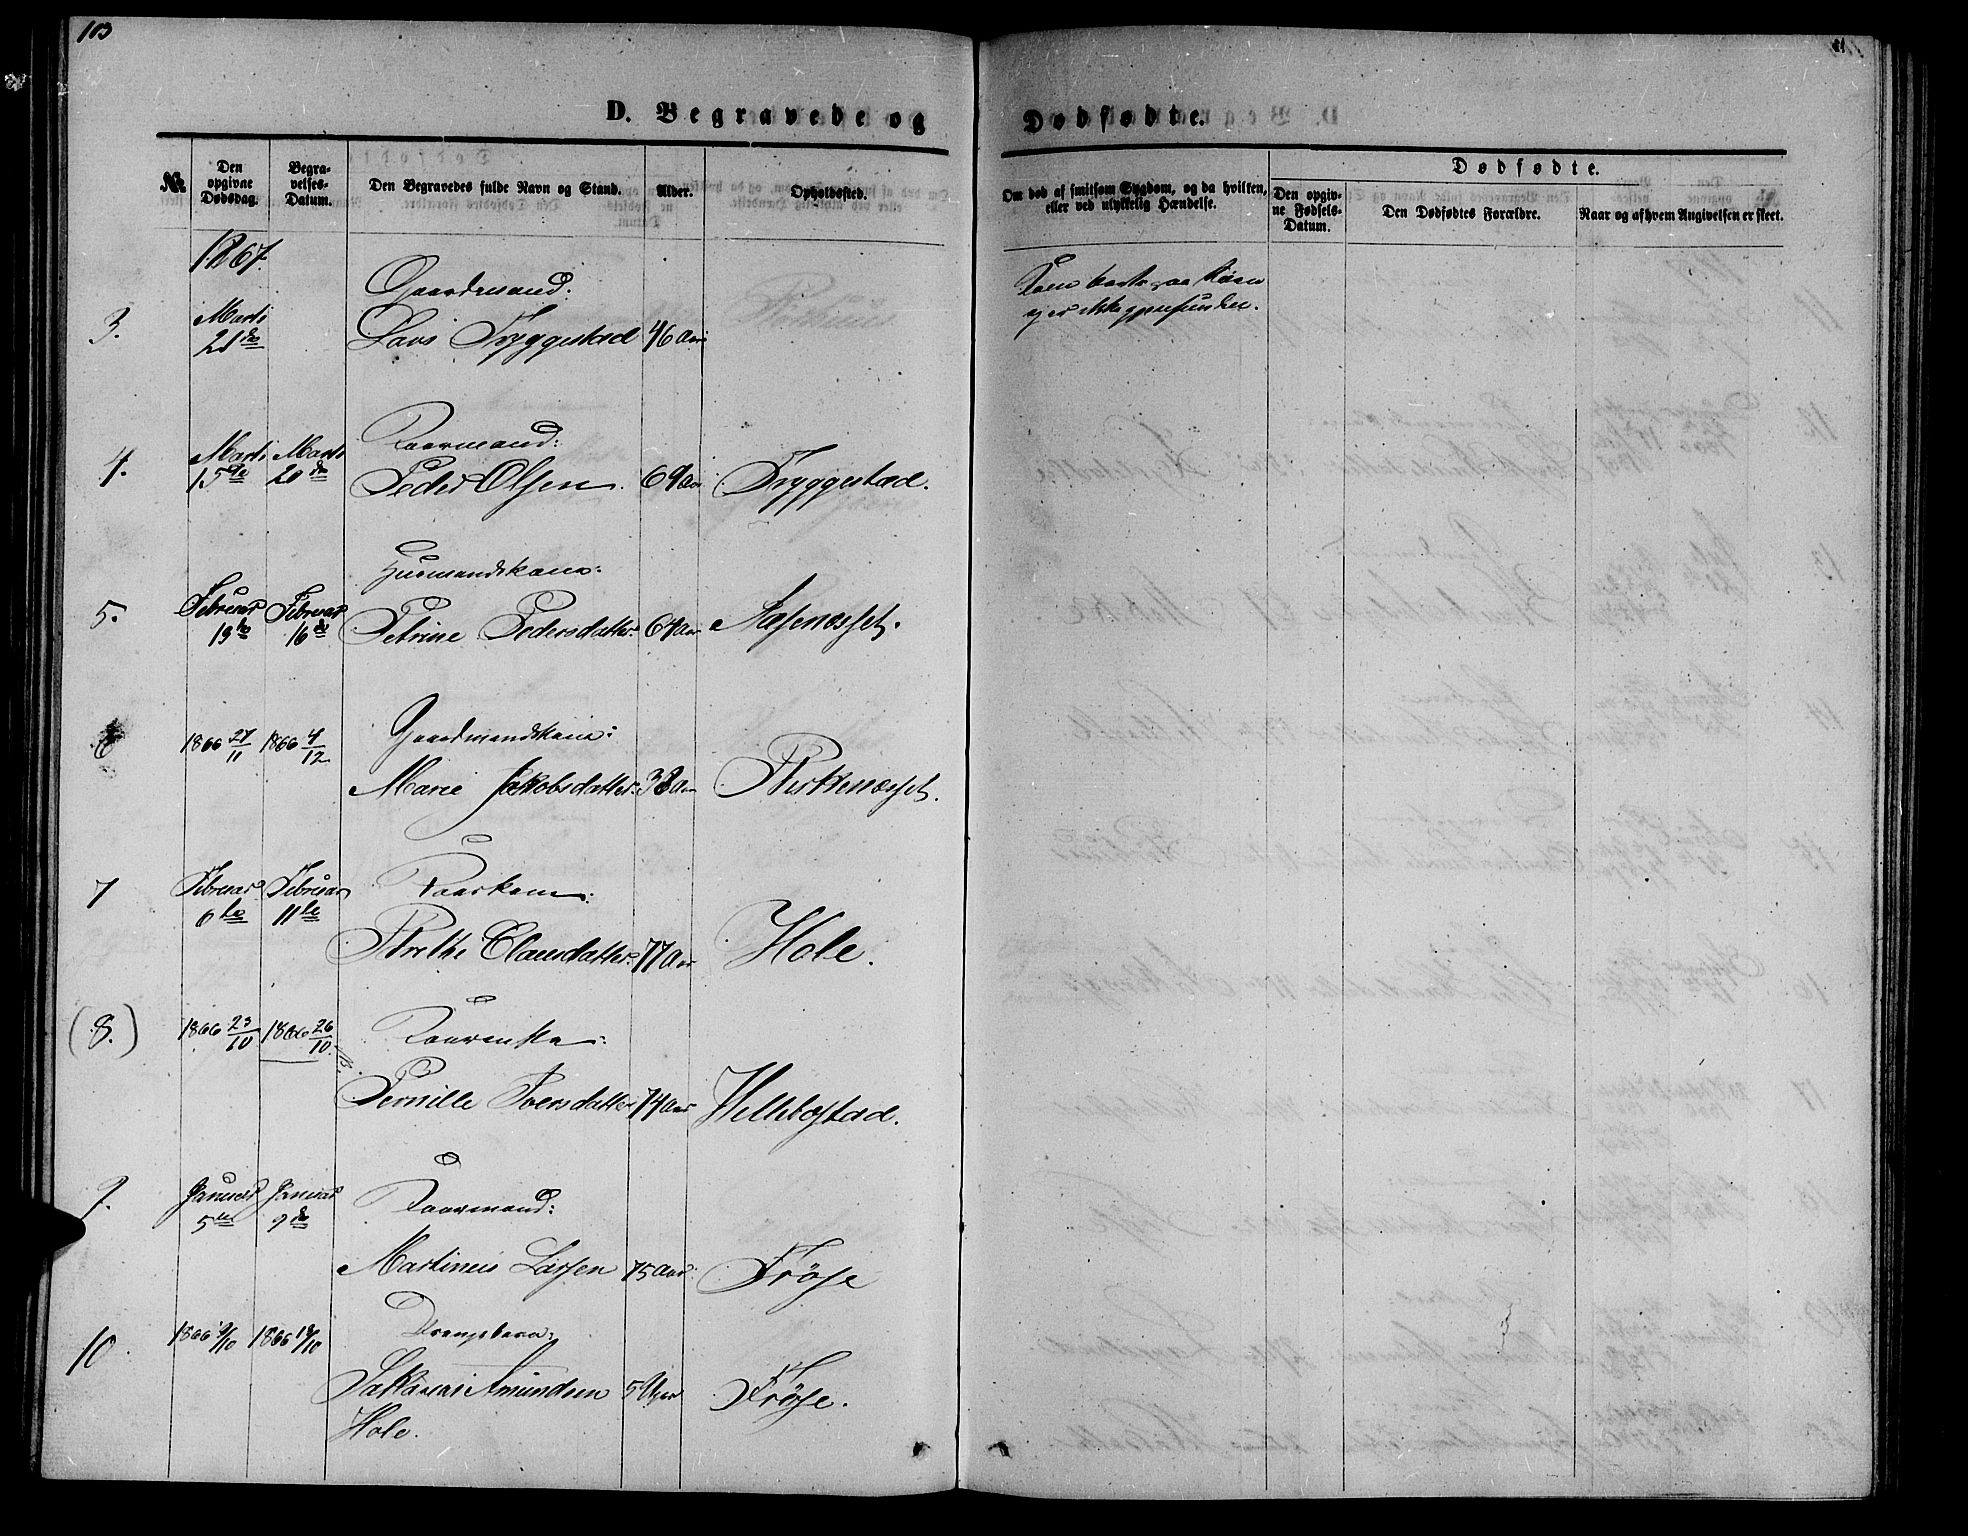 103
D. Begravede og Dødfødte.
№
Den opgivne Dødsdag.
Begravelses-Datum.
Den Begravedes fulde Navn og Stand.
Alder.
Opholdssted.
Om død af smitsom Sygdom, og da hvilken, eller ved ulykkelig Hændelse.
Dødfødte.
Den opgivne Fødsels-Datum.
Den Dødfødtes Forældre.
Naar og af hvem Angivelsen er skeet.
1867.
3. Marts 21de Gaardmand: Lars Tryggestad 46 Aar
og er ikke gjenfunden.
4. Marts 15de Marts 20de Kaarmand: Peder Olsen 69 Aar Tryggestad.
5. Februar 13de Februar 16de Huusmandskone: Petrine Pedersdatter 64 Aar Aasenæsset.
6 1866 27/11 1866 4/12 Gaardmandskone: Marie Jakobsdatter 38 Aar Birkenæsset.
7 Februar 6te Februar 11te Kaarkone: Brethe Clausdatter 77 Aar Hole.
(8.) 1866 23/10 1866 26/10 Kaarenke: Pernille Iversdatter 74 Aar Wellebøstad.
9. Januar 5te Januar 9de Kaarmand: Martinus Larsen 75 Aar Frøse
10 1866 9/10 1866 18/10 Drengebarn: Sakarias Amundsen Hole. 5 Uger Frøse.